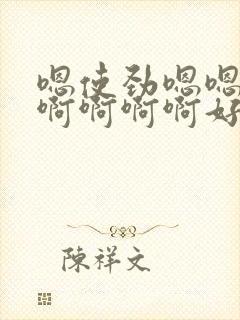 嗯使劲嗯嗯
啊啊啊啊好
陳祥文